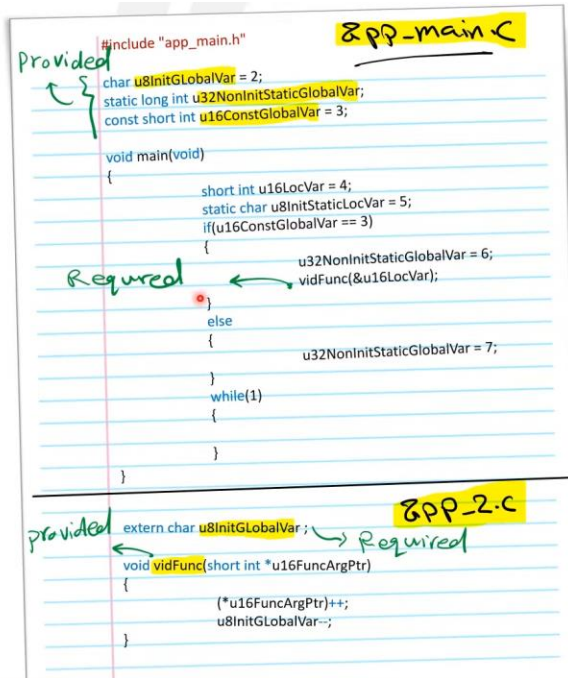 app_main.c
#include "app_main.h"
Provided
char u8InitGLobalVar = 2;
static long int u32NonInitStaticGlobalVar;
const short int u16ConstGlobalVar = 3;
void main(void)
{
short int u16LocVar = 4;
static char u8InitStaticLocVar = 5;
if(u16ConstGlobalVar == 3)
{
u32NonInitStaticGlobalVar = 6;
Requred
vidFunc(&u16LocVar);
}
else
{
u32NonInitStaticGlobalVar = 7;
}
while(1)
{
}
}
app_2.c
provided
extern char u8InitGLobalVar ;
Required
void vidFunc(short int *u16FuncArgPtr)
{
(*u16FuncArgPtr)++;
u8InitGLobalVar--;
}